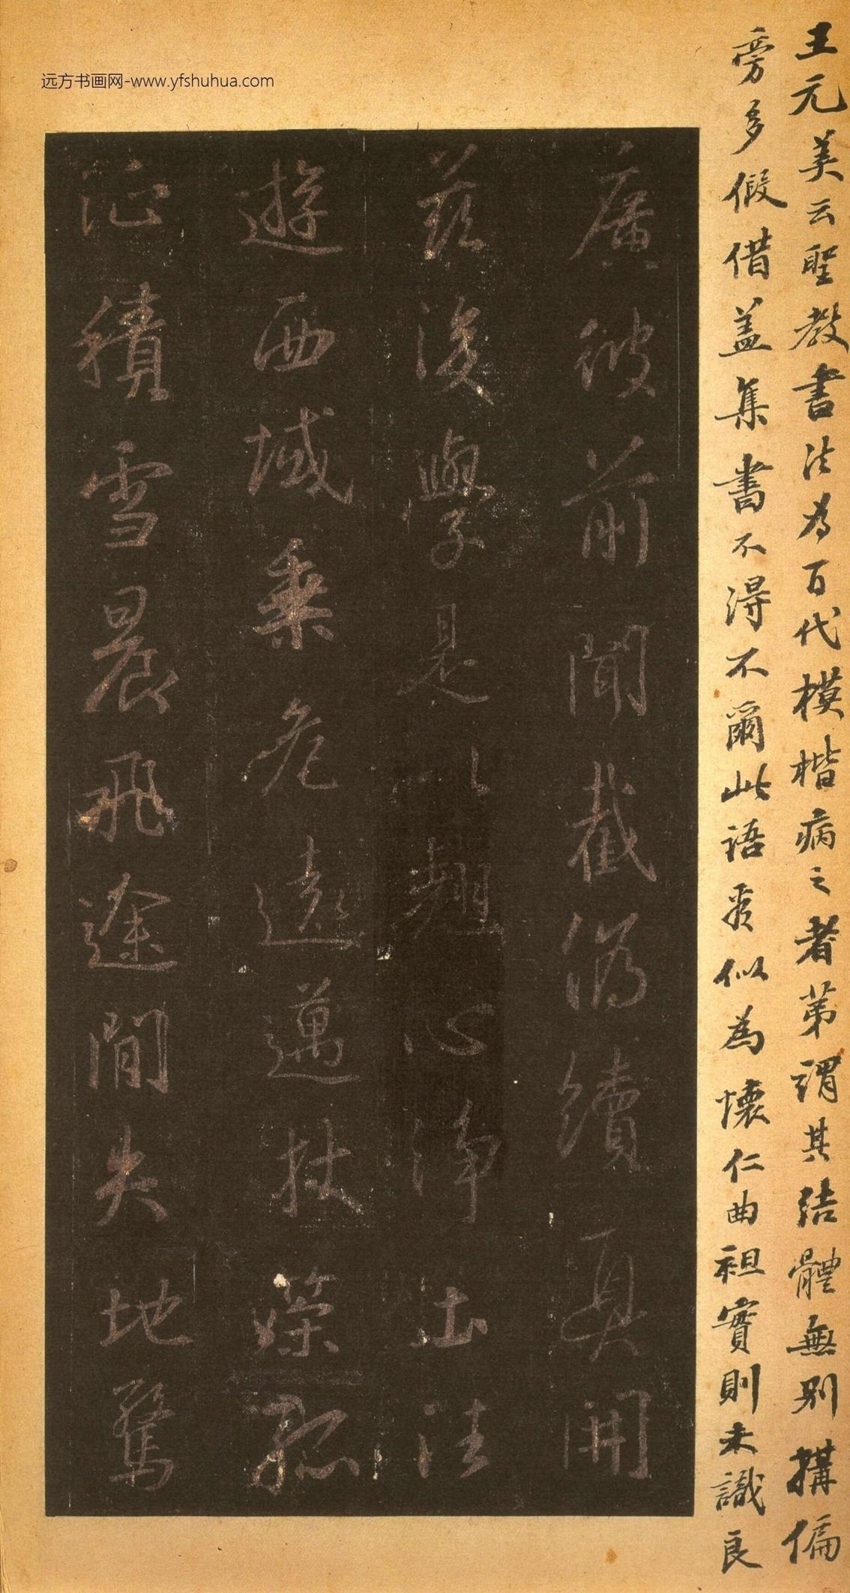 远方书画网-www.yfshuhua.com
王元美云聖教書法為百代模楷病之者第謂其結體無別搆偏
旁多假借盖集書不淂不爾此語秀似為懷仁曲袒實則未識良
廣彼前聞截偽續真開
茲後學是以翹心淨土法
遊西域乘危遠邁杖策孤
征積雪晨飛途間失地驚